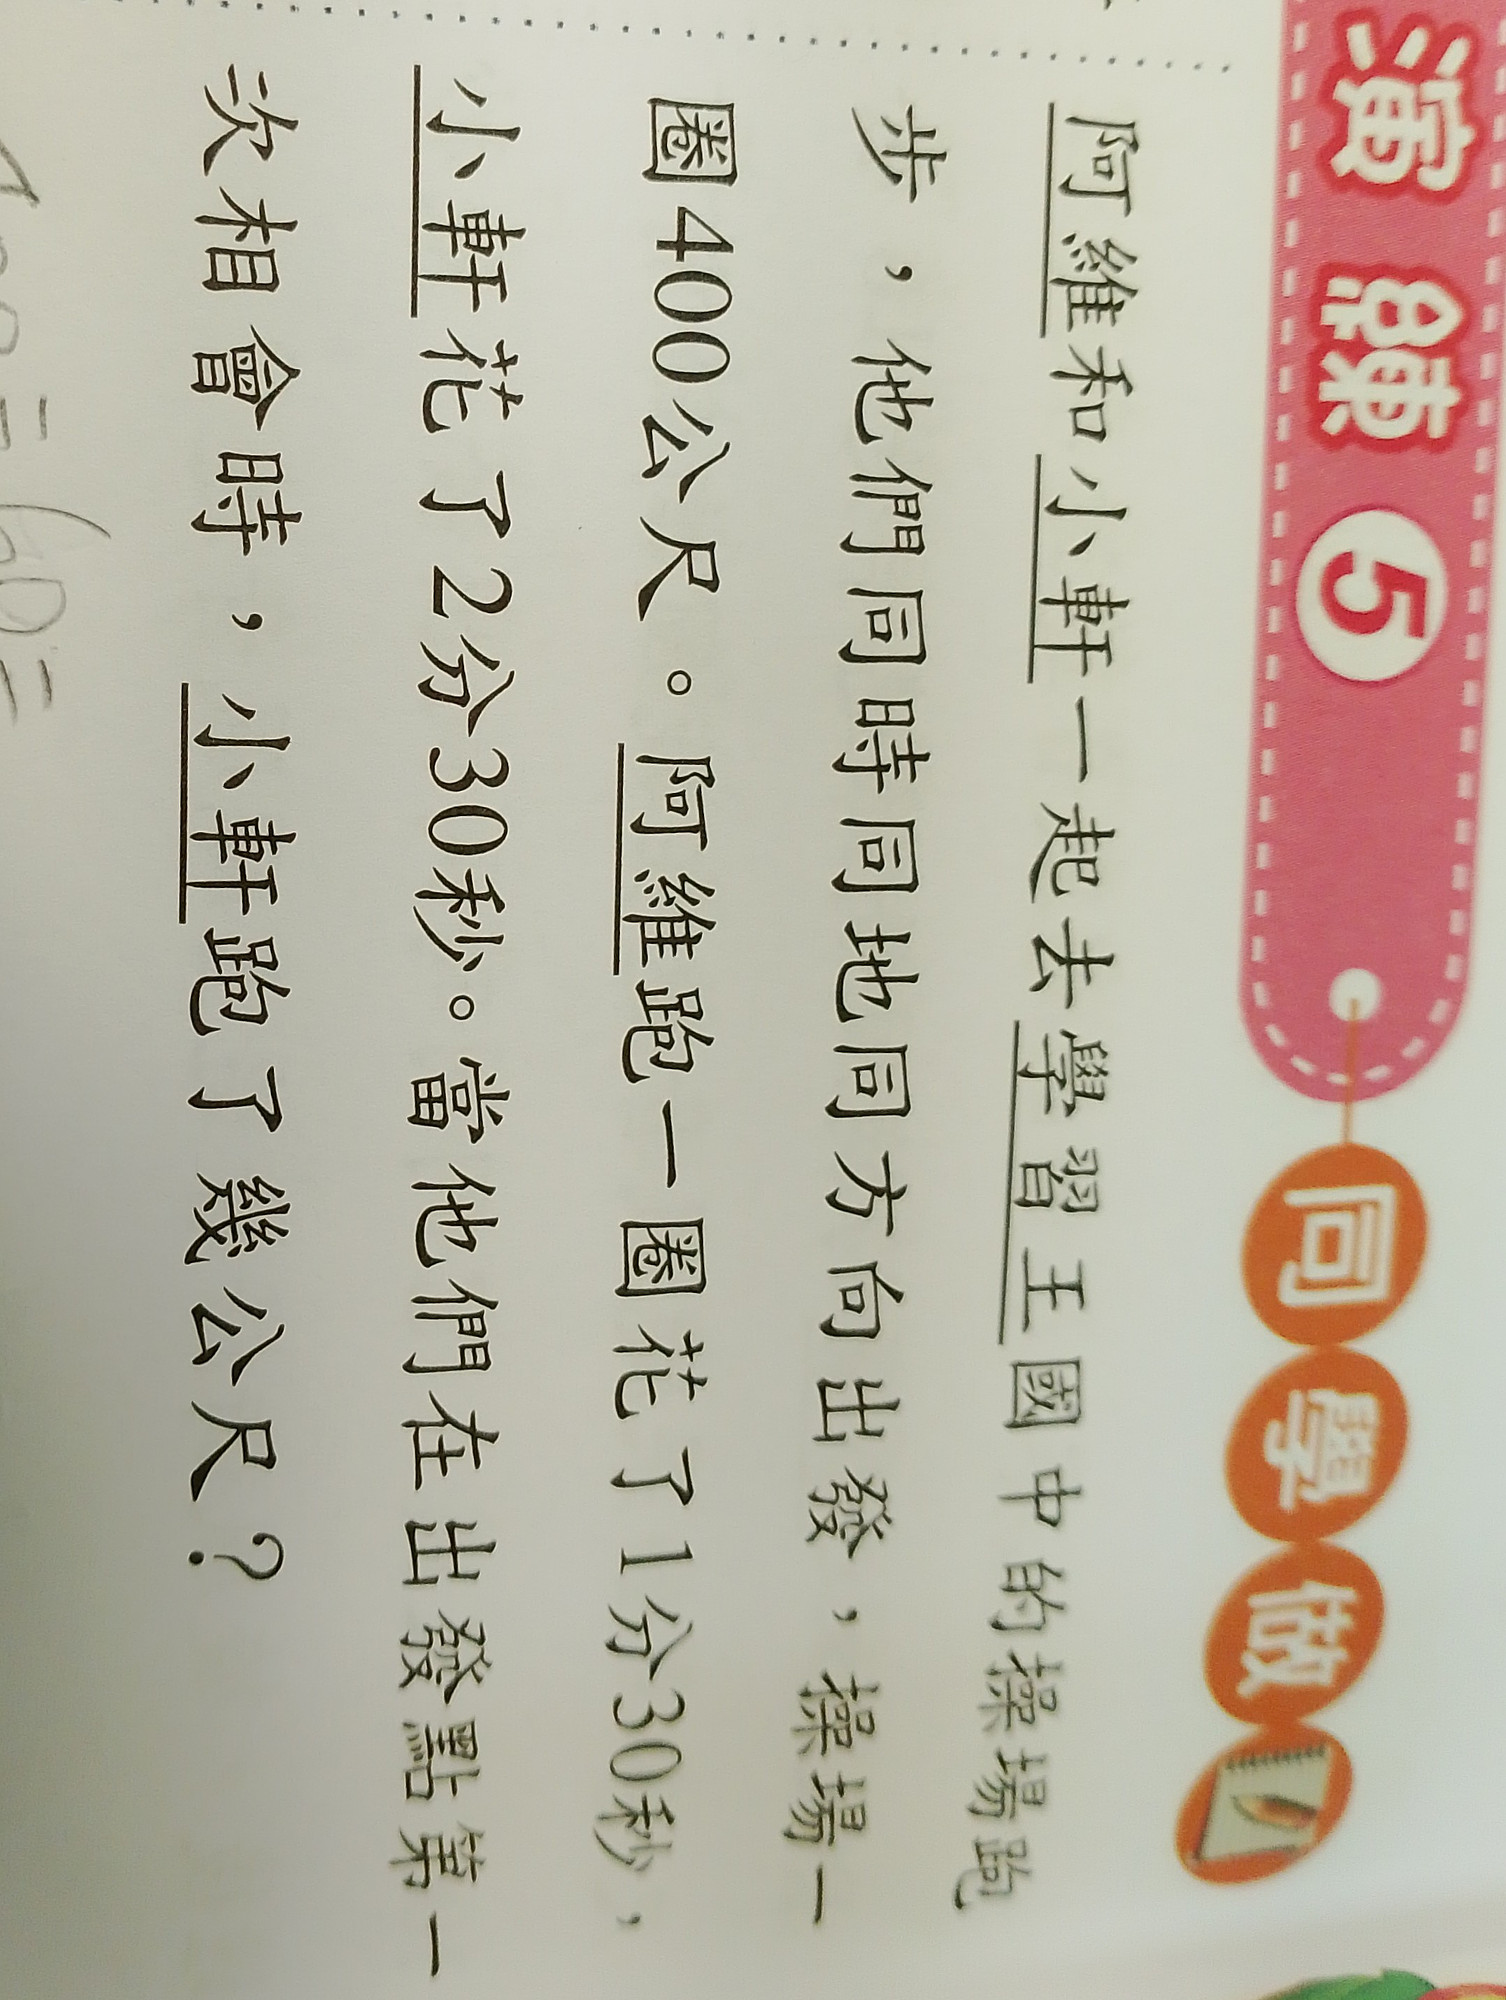 演練5 同學做
阿維和小軒一起去學習王國中的操場跑
步，他們同時同地同方向出發，操場一
圈400公尺。阿維跑一圈花了1分30秒，
小軒花了2分30秒。當他們在出發點第一
次相會時，小軒跑了幾公尺？